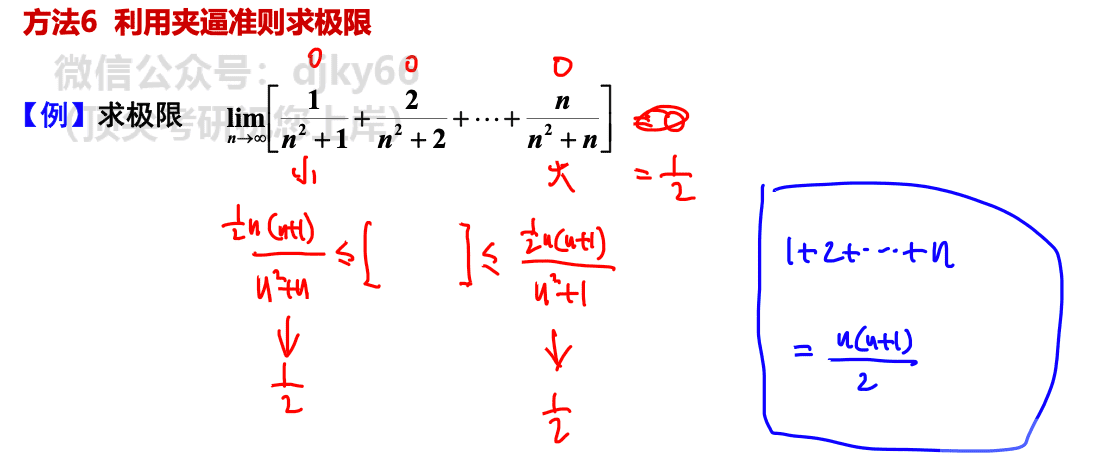 方法6 利用夹逼准则求极限
微信公众号：djky66
0 0 0
【例】求极限 lim n→∞ [ 1/(n²+1) + 2/(n²+2) + ⋯ + n/(n²+n) ]
小 大 = 1/2
½n(n+1)/(n²+n) ≤ [ ] ≤ ½n(n+1)/(n²+1)
↓ ↓
1/2 1/2
1+2+⋯+n
= n(n+1)/2